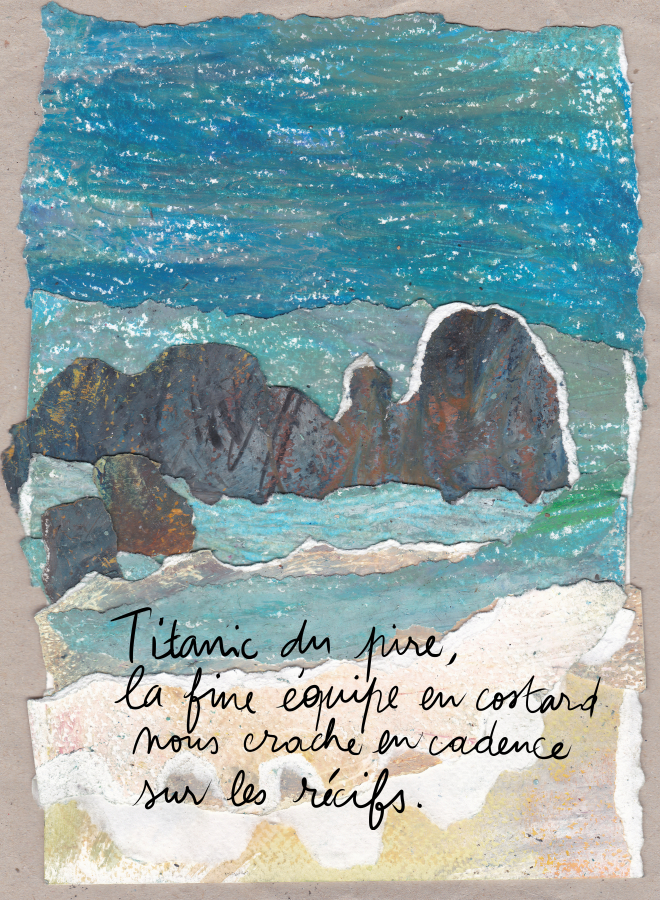 Titanic du pire,
la fine équipe en costard
nous crache en cadence
sur les récifs.